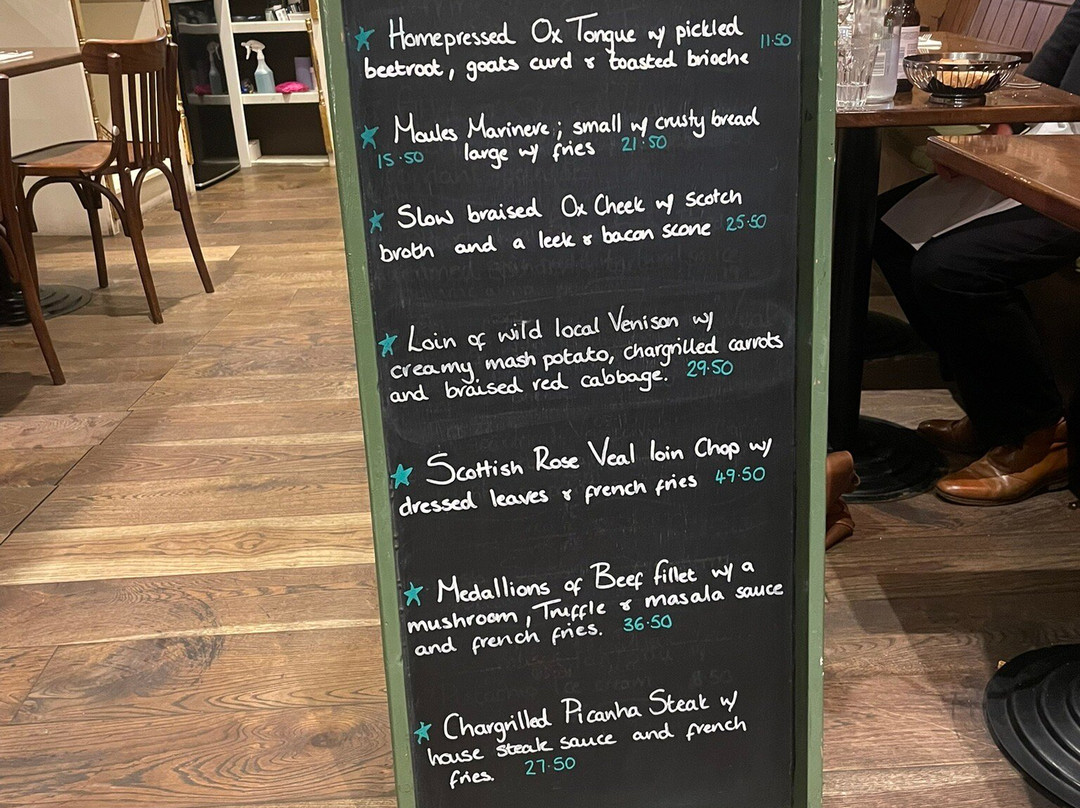 ★ Homepressed Ox Tongue w/ pickled 11·50
beetroot, goats curd & toasted brioche
★ Moules Marinere; small w/ crusty bread
15·50 large w/ fries 21·50
★ Slow braised Ox Cheek w/ scotch
broth and a leek & bacon scone 25·50
★ Loin of wild local Venison w/
creamy mash potato, chargrilled carrots
and braised red cabbage. 29·50
★ Scottish Rose Veal loin Chop w/
dressed leaves & french fries 49·50
★ Medallions of Beef fillet w/ a
mushroom, Truffle & masala sauce
and french fries. 36·50
★ Chargrilled Picanha Steak w/
house steak sauce and french
fries. 27·50